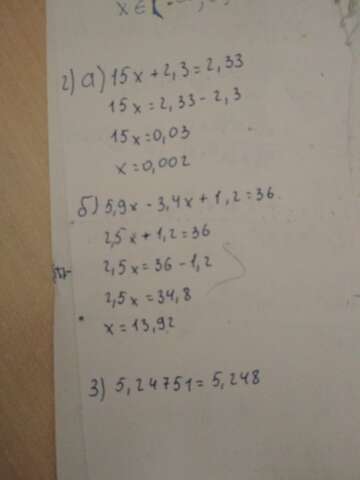 x ∈ [
2) а) 15x + 2,3 = 2,33
15x = 2,33 - 2,3
15x = 0,03
x = 0,002
б) 5,9x - 3,4x + 1,2 = 36
2,5x + 1,2 = 36
2,5x = 36 - 1,2
2,5x = 34,8
x = 13,92
3) 5,24751 = 5,248